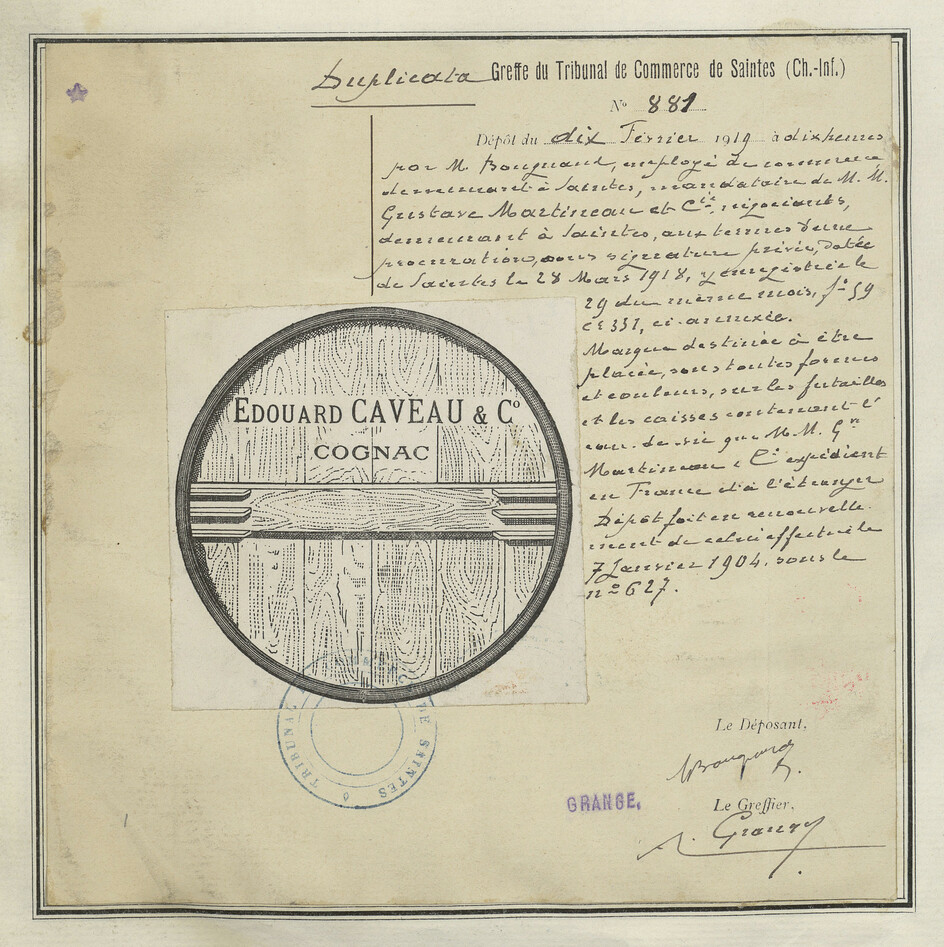 Duplicata Greffe du Tribunal de Commerce de Saintes (Ch.-Inf.)
N° 881
Dépôt du dix Février 1919 à dix heures
par M. Bougnaud, employé de commerce
demeurant à Saintes, mandataire de M. M.
Gustave Martineau et Cie, négociants,
demeurant à Saintes, aux termes d'une
procuration, sous signature privée, datée
de Saintes le 28 Mars 1918, y enregistrée le
29 du même mois, fo 59
ce 351, ci-annexée.
Marque destinée à être
placée, sous toutes formes
et couleurs, sur les futailles
et les caisses contenant l'
eau-de-vie que M. M. Gve
Martineau & Cie expédient
en France et à l'étranger
Dépôt fait en renouvelle-
ment de celui effectué le
7 Janvier 1904, sous le
no 627.
EDOUARD CAVEAU & Co
COGNAC
TRIBUNAL DE SAINTES
Le Déposant,
Bougnaud
GRANGE.
Le Greffier,
Grange